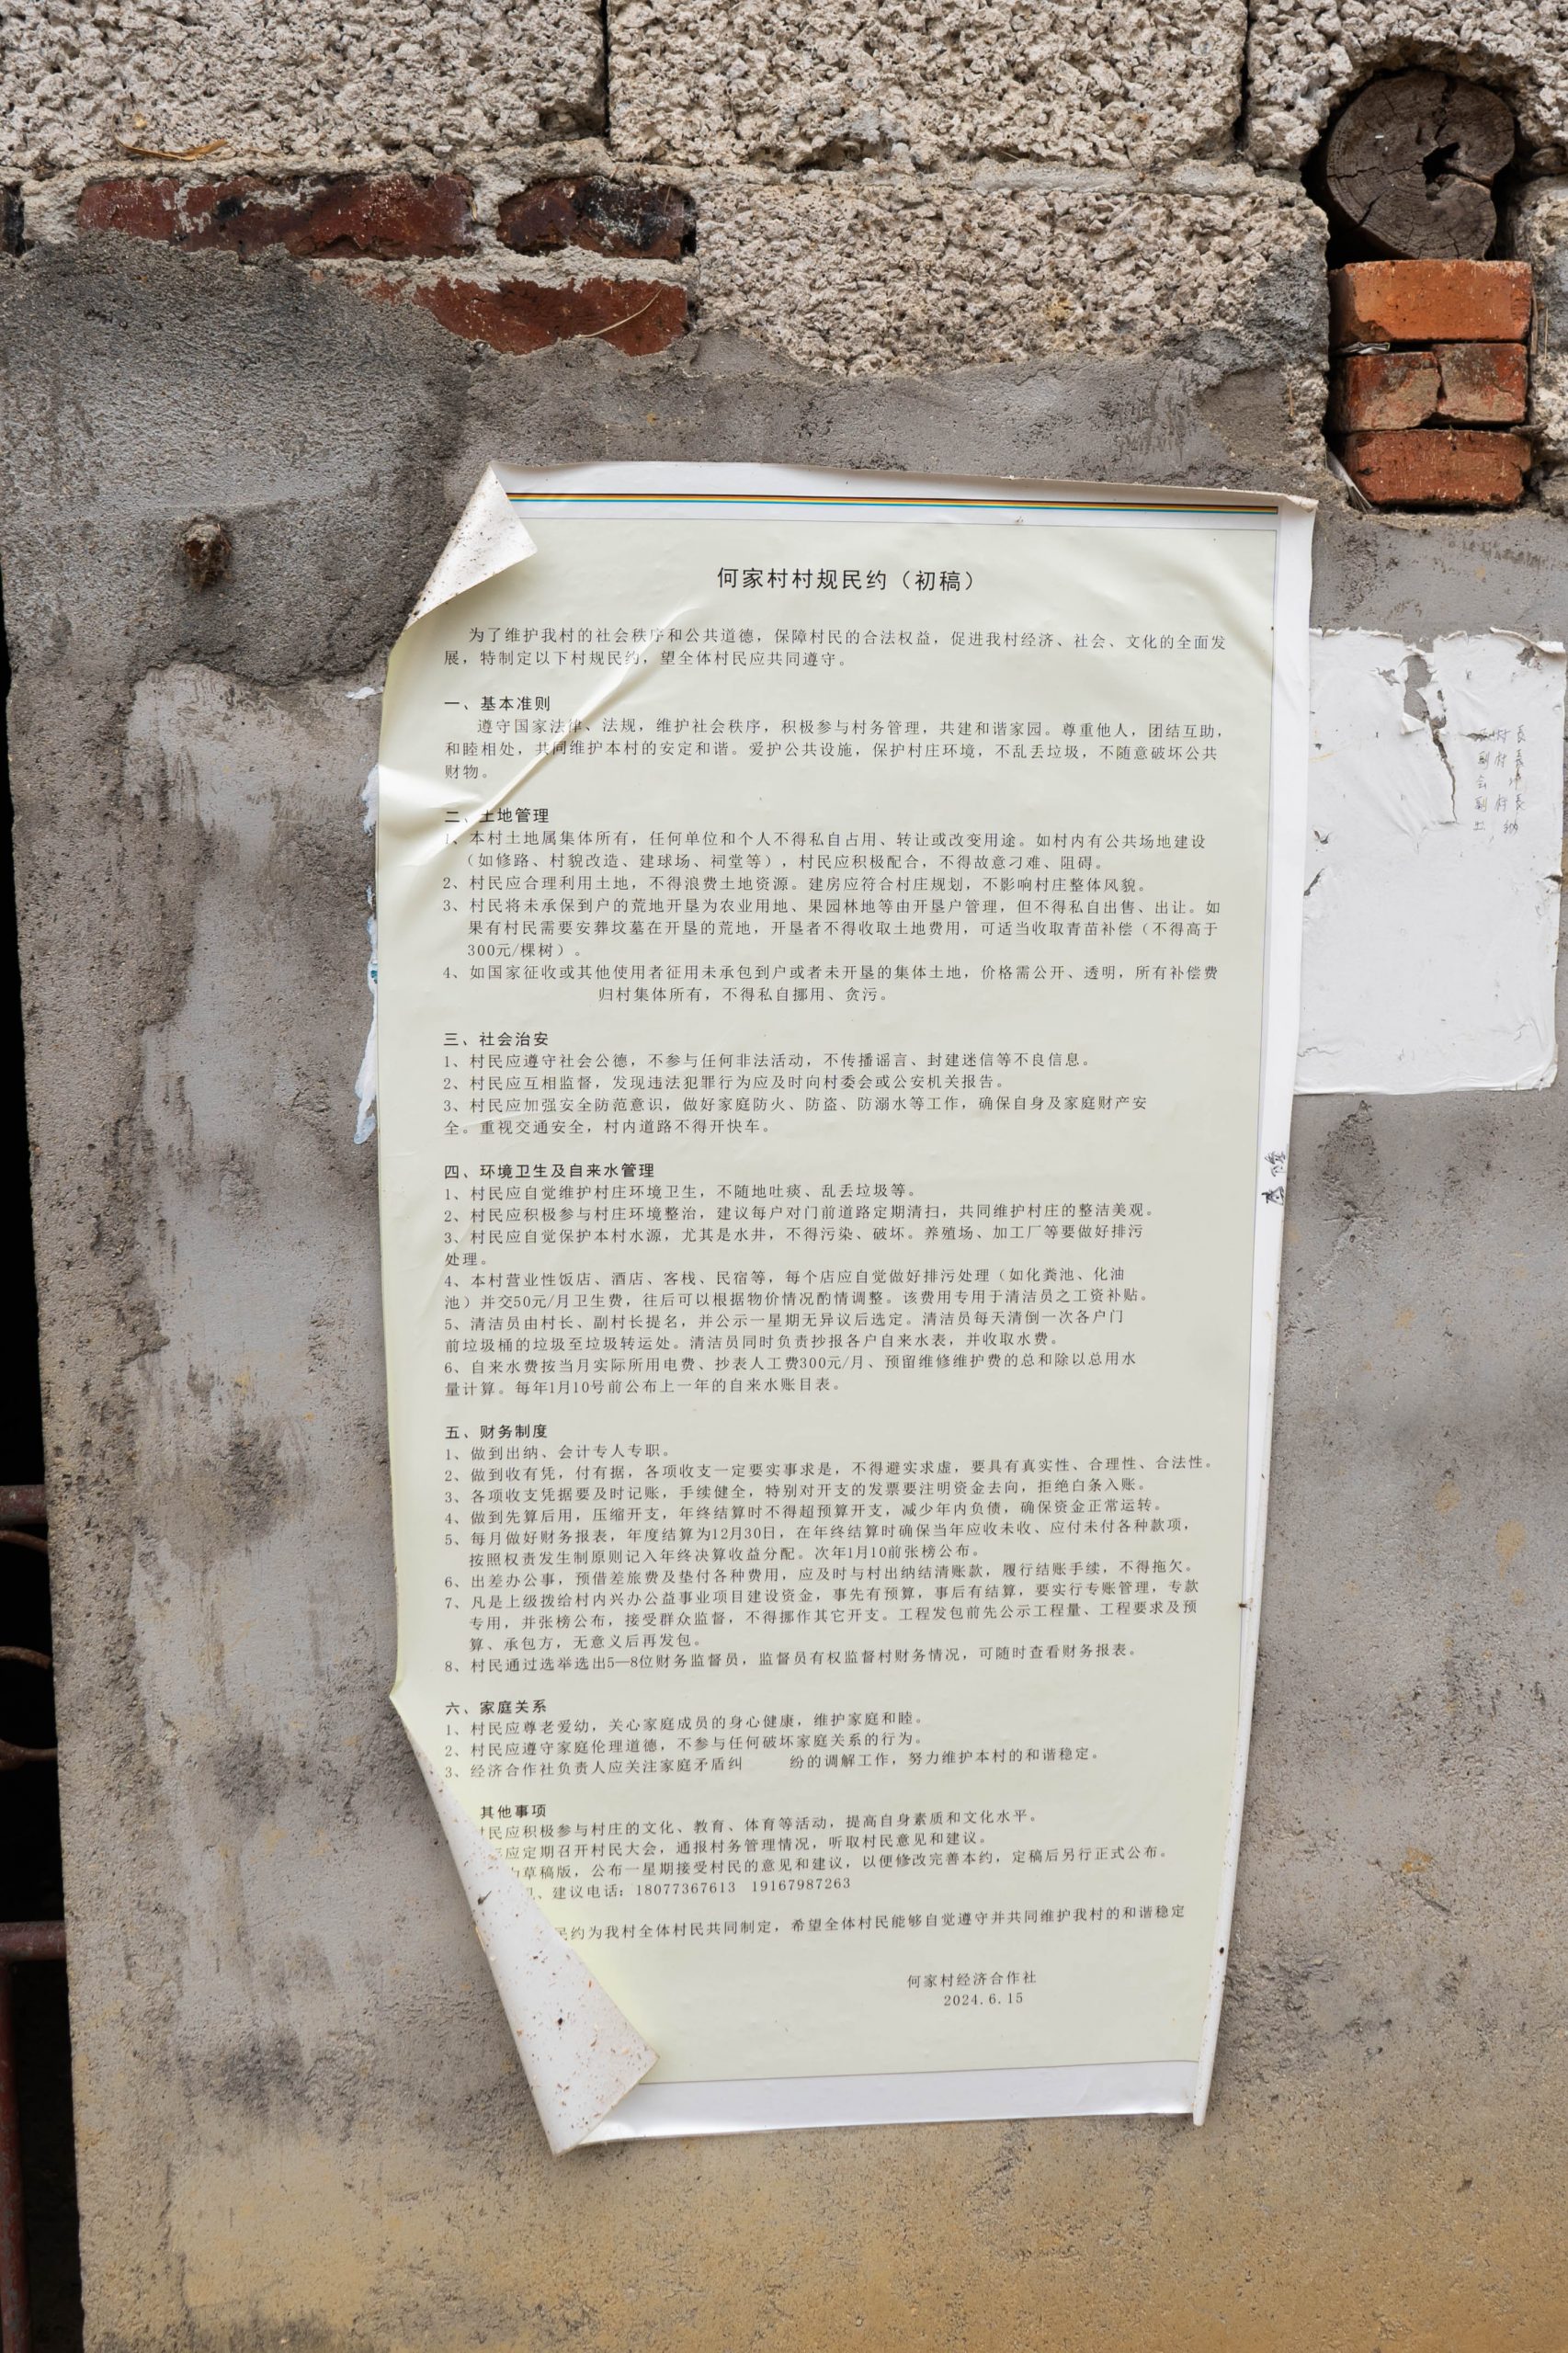 何家村村规民约（初稿）
为了维护我村的社会秩序和公共道德，保障村民的合法权益，促进我村经济、社会、文化的全面发
展，特制定以下村规民约，望全体村民应共同遵守。
一、基本准则
遵守国家法律、法规，维护社会秩序，积极参与村务管理，共建和谐家园。尊重他人，团结互助，
和睦相处，共同维护本村的安定和谐。爱护公共设施，保护村庄环境，不乱丢垃圾，不随意破坏公共
财物。
二、土地管理
1、本村土地属集体所有，任何单位和个人不得私自占用、转让或改变用途。如村内有公共场地建设
（如修路、村貌改造、建球场、祠堂等），村民应积极配合，不得故意刁难、阻碍。
2、村民应合理利用土地，不得浪费土地资源。建房应符合村庄规划，不影响村庄整体风貌。
3、村民将未承保到户的荒地开垦为农业用地、果园林地等由开垦户管理，但不得私自出售、出让。如
果有村民需要安葬坟墓在开垦的荒地，开垦者不得收取土地费用，可适当收取青苗补偿（不得高于
300元/棵树）。
4、如国家征收或其他使用者征用未承包到户或者未开垦的集体土地，价格需公开、透明，所有补偿费
归村集体所有，不得私自挪用、贪污。
三、社会治安
1、村民应遵守社会公德，不参与任何非法活动，不传播谣言、封建迷信等不良信息。
2、村民应互相监督，发现违法犯罪行为应及时向村委会或公安机关报告。
3、村民应加强安全防范意识，做好家庭防火、防盗、防溺水等工作，确保自身及家庭财产安
全。重视交通安全，村内道路不得开快车。
四、环境卫生及自来水管理
1、村民应自觉维护村庄环境卫生，不随地吐痰、乱丢垃圾等。
2、村民应积极参与村庄环境整治，建议每户对门前道路定期清扫，共同维护村庄的整洁美观。
3、村民应自觉保护本村水源，尤其是水井，不得污染、破坏。养殖场、加工厂等要做好排污
处理。
4、本村营业性饭店、酒店、客栈、民宿等，每个店应自觉做好排污处理（如化粪池、化油
池）并交50元/月卫生费，往后可以根据物价情况酌情调整。该费用专用于清洁员之工资补贴。
5、清洁员由村长、副村长提名，并公示一星期无异议后选定。清洁员每天清倒一次各户门
前垃圾桶的垃圾至垃圾转运处。清洁员同时负责抄报各户自来水表，并收取水费。
6、自来水费按当月实际所用电费、抄表人工费300元/月、预留维修维护费的总和除以总用水
量计算。每年1月10号前公布上一年的自来水账目表。
五、财务制度
1、做到出纳、会计专人专职。
2、做到收有凭，付有据，各项收支一定要实事求是，不得避实求虚，要具有真实性、合理性、合法性。
3、各项收支凭据要及时记账，手续健全，特别对开支的发票要注明资金去向，拒绝白条入账。
4、做到先算后用，压缩开支，年终结算时不得超预算开支，减少年内负债，确保资金正常运转。
5、每月做好财务报表，年度结算为12月30日，在年终结算时确保当年应收未收、应付未付各种款项，
按照权责发生制原则记入年终决算收益分配。次年1月10前张榜公布。
6、出差办公事，预借差旅费及垫付各种费用，应及时与村出纳结清账款，履行结账手续，不得拖欠。
7、凡是上级拨给村内兴办公益事业项目建设资金，事先有预算，事后有结算，要实行专账管理，专款
专用，并张榜公布，接受群众监督，不得挪作其它开支。工程发包前先公示工程量、工程要求及预
算、承包方，无意义后再发包。
8、村民通过选举选出5—8位财务监督员，监督员有权监督村财务情况，可随时查看财务报表。
六、家庭关系
1、村民应尊老爱幼，关心家庭成员的身心健康，维护家庭和睦。
2、村民应遵守家庭伦理道德，不参与任何破坏家庭关系的行为。
3、经济合作社负责人应关注家庭矛盾纠 纷的调解工作，努力维护本村的和谐稳定。
其他事项
民应积极参与村庄的文化、教育、体育等活动，提高自身素质和文化水平。
应定期召开村民大会，通报村务管理情况，听取村民意见和建议。
草稿版，公布一星期接受村民的意见和建议，以便修改完善本约，定稿后另行正式公布。
、建议电话：18077367613 19167987263
民约为我村全体村民共同制定，希望全体村民能够自觉遵守并共同维护我村的和谐稳定
何家村经济合作社
2024.6.15
村长
副村长
会计
副村长
出纳